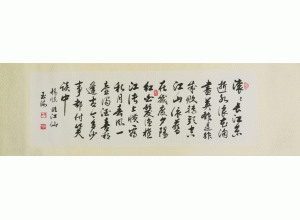 滚々長江東
逝水浪花淘
盡英雄是非
成敗轉頭空
江山依舊
在幾度夕陽
紅白髮漁樵
江渚上慣看
秋月春風一
壺濁酒喜相
逢古今多少
事都付笑
談中
楊慎臨江仙